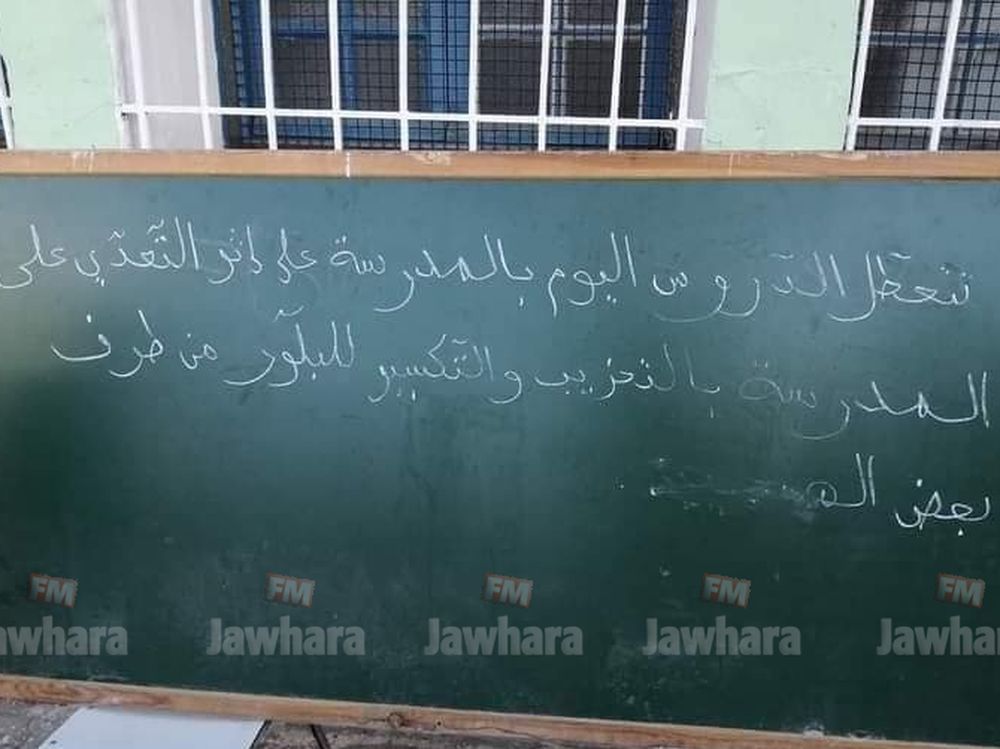 تتعطّل الدّروس اليوم بالمدرسة على إثر التّعدّي على
المدرسة بالتخريب والتّكسير للبلّور من طرف
بعض
FM FM FM FM FM
Jawhara Jawhara Jawhara Jawhara Jawhara